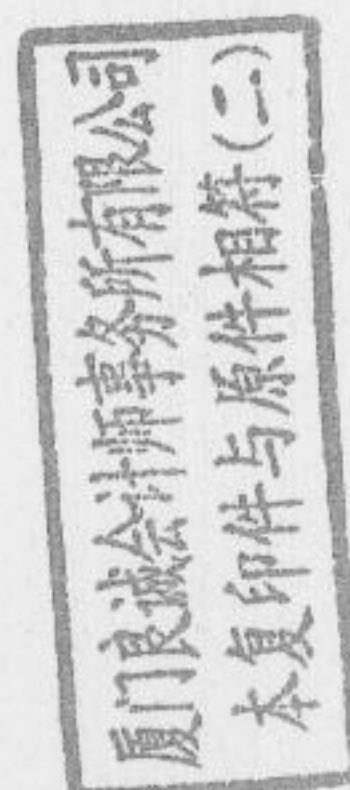 厦门良诚会计师事务所有限公司
本复印件与原件相符(二)